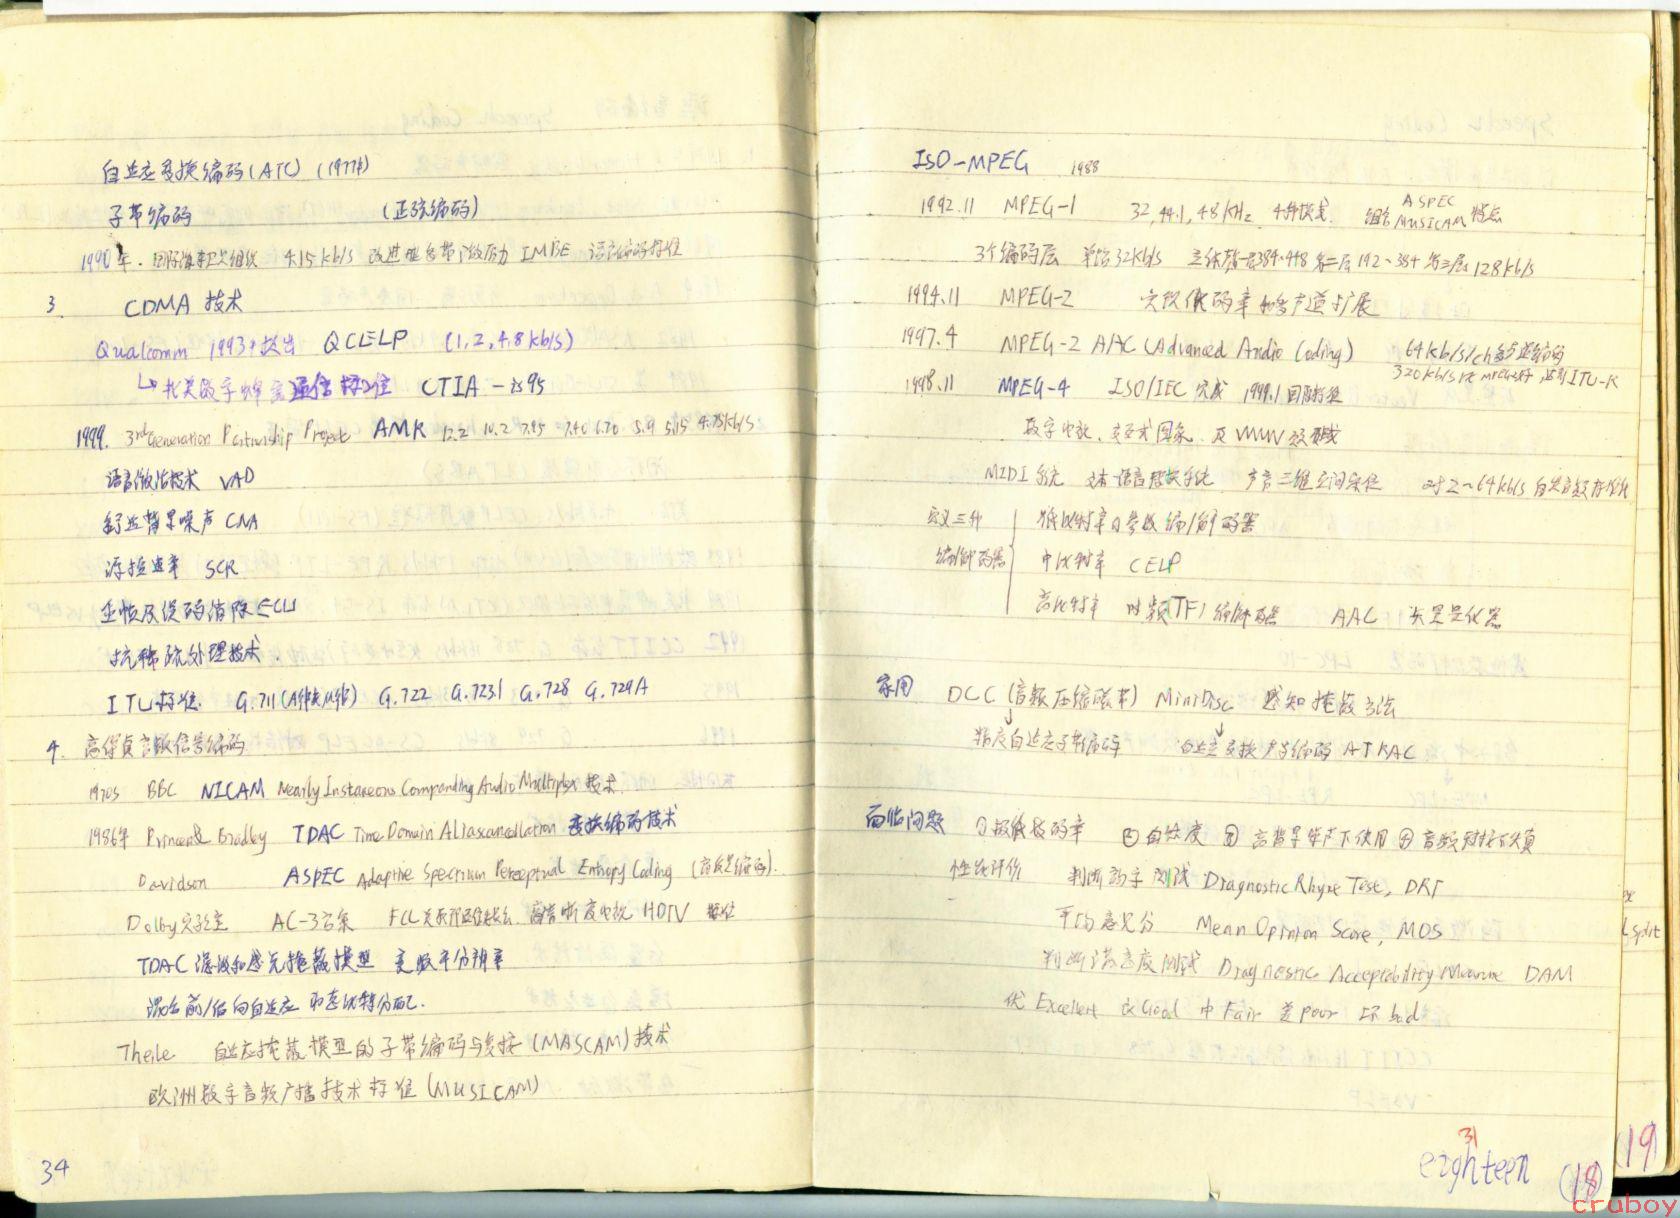 自适应变换编码(ATC) (1977年)
子带编码 (正弦编码)
1990年. 国际海事卫星组织 4.15kb/s 改进型多带激励 IMBE 语音编码标准
3. CDMA 技术
Qualcomm 1993年提出 QCELP (1,2,4,8kb/s)
↳北美数字蜂窝通信标准 CTIA-IS95
1999. 3rd Generation Partnership Project AMR 12.2 10.2 7.95 7.40 6.70 5.9 5.15 4.75kb/s
语音激活技术 VAD
舒适背景噪声 CNA
源控速率 SCR
误码消除ECU
处理技术.
ITU标准. G.711(A律或μ律) G.722 G.723.1 G.728 G.729A
4. 高保真音频信号编码
1970s BBC NICAM Nearly Instaneous Companding Audio Multiplex 技术.
1986年 Princen& Bradley TDAC Time Domain Aliascancellation 变换编码技术
Davidson ASPEC Adaptive Spectrum Perceptual Entropy Coding (高质量编码).
Dolby实验室 AC-3方案 FCC 高清晰度电视 HDTV 标准
TDAC 滤波和感觉掩蔽模型 变频率分辨率
混合前/后向自适应和比特分配.
Theile 自适应掩蔽模型的子带编码与复接(MASCAM)技术
欧洲数字音频广播技术标准(MUSICAM)
34
ISO-MPEG 1988
1992.11 MPEG-1 32,44.1,48kHz 4种模式. 组合 ASPEC MUSICAM 特点
3个编码层 单路32kb/s 立体声第一层384~448 第二层192~384 第三层128kb/s
1994.11 MPEG-2 实现低码率和多声道扩展
1997.4 MPEG-2 AAC (Advanced Audio Coding) 64kb/s/ch 多声道编码
320kb/s比MPEG2好 达到ITU-R
1998.11 MPEG-4 ISO/IEC 完成 1999.1国际标准
数字电视、交互式图象、及WWW领域
MIDI系统 文本语音转换系统 声音三维空间定位 对2~64kb/s 自然音频标准化
定义三种编/解码器 低比特率的参数编/解码器
中比特率 CELP
高比特率 时频(TF)编解码器 AAC 矢量量化器
家用 DCC (音频压缩磁带) MiniDisc 感知掩蔽方法
↓ ↓
精度自适应子带编码 自适应变换声学编码 ATRAC
面临问题 ①超低数码率 ②自然度 ③高背景噪声下使用 ④音频对接不失真
性能评价 判断韵字测试 Diagnostic Rhyme Test, DRT
平均意见分 Mean Opinion Score, MOS
判断满意度测试 Diagnostic Acceptability Measure DAM
优 Excellent 良Good 中 Fair 差 poor 坏 bad
31
eighteen (18)
19
split
cruboy